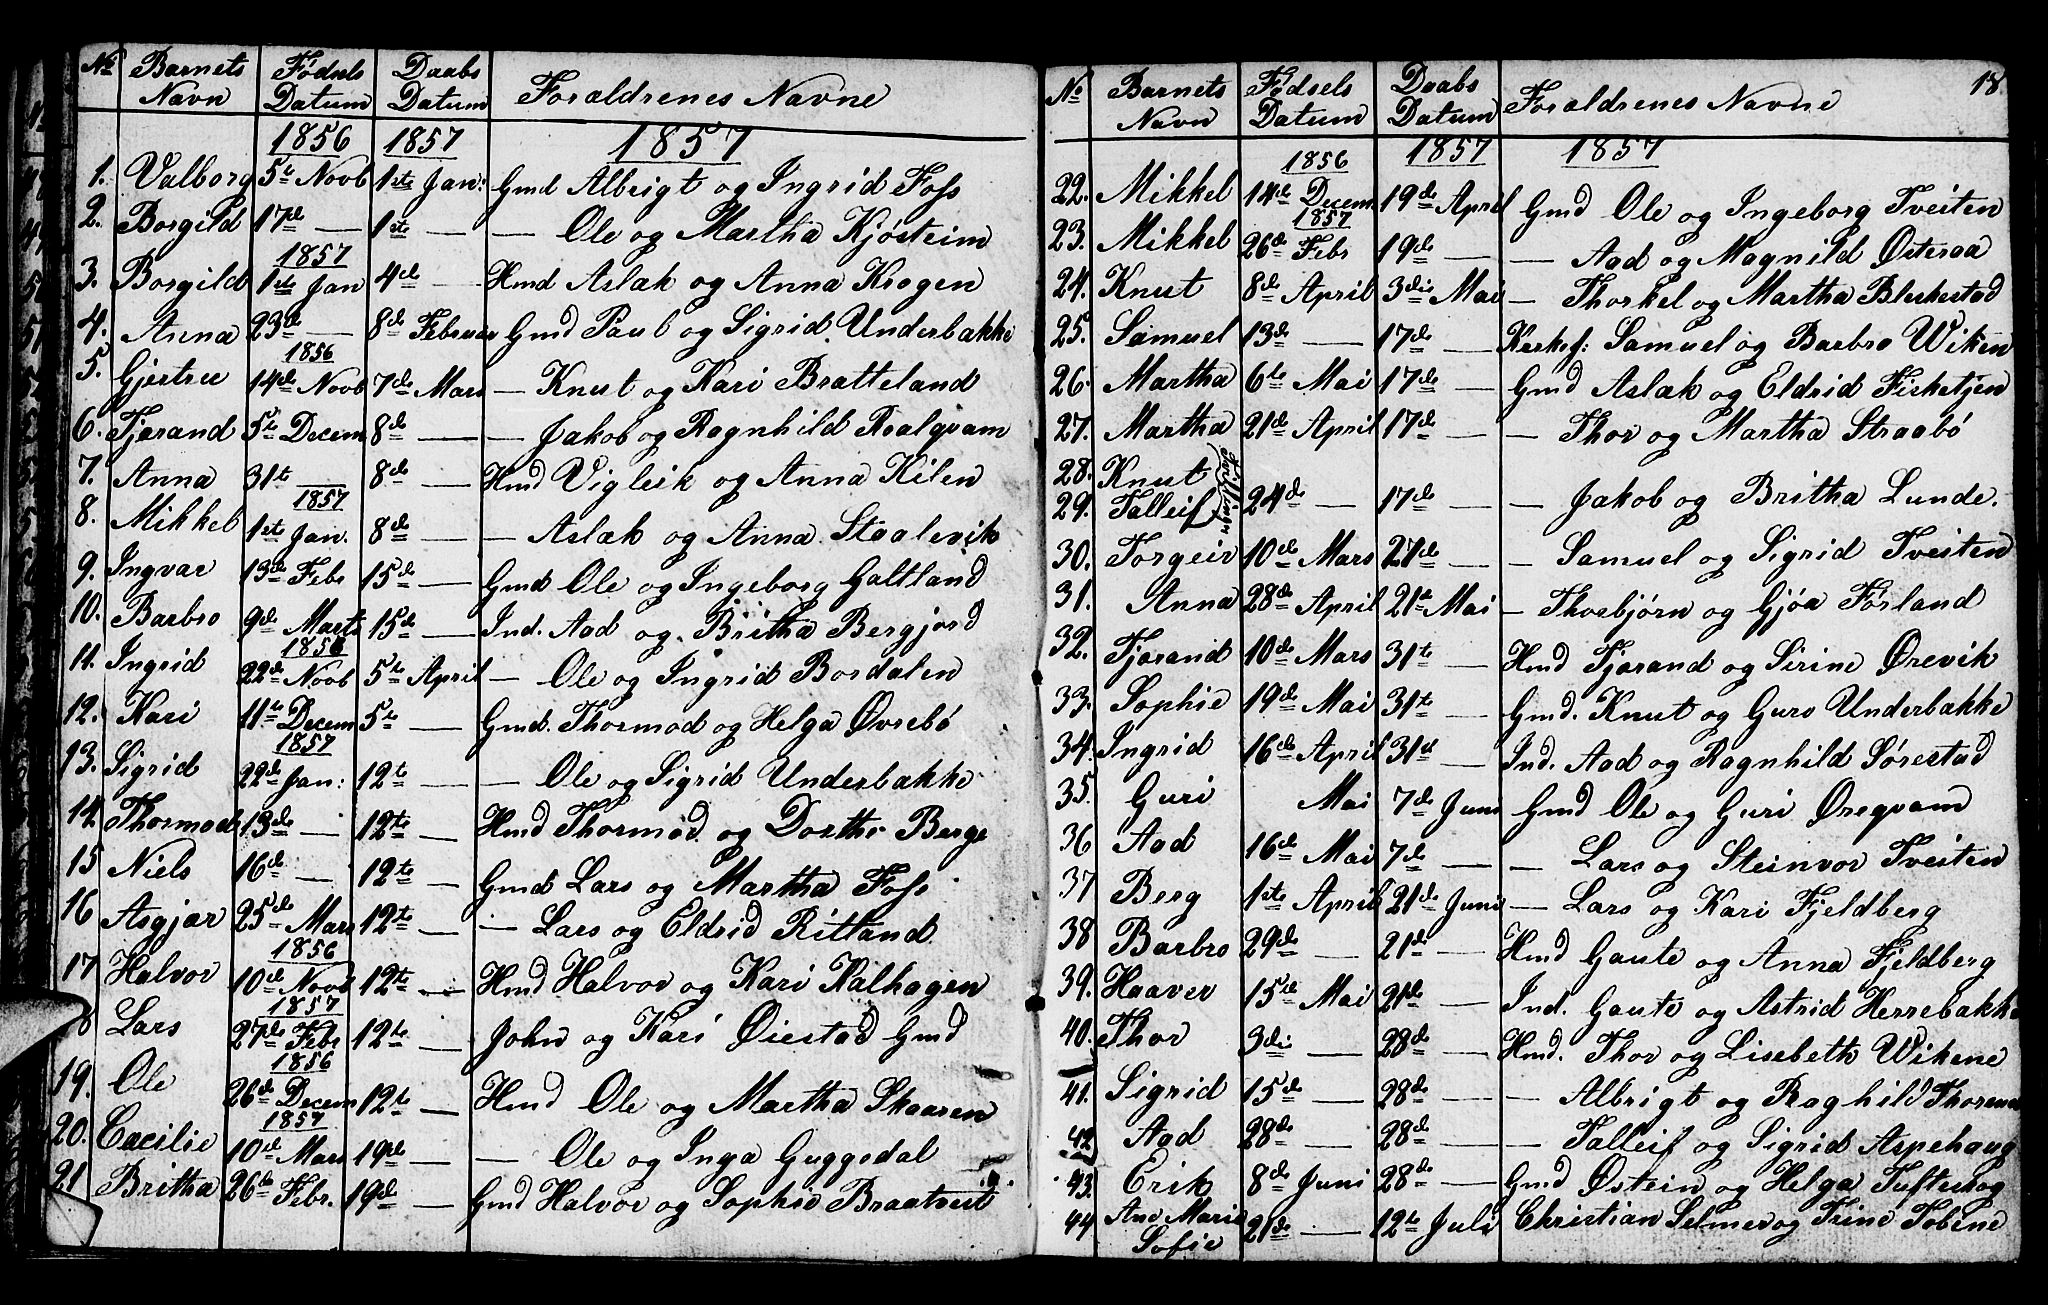 No Barnets Navn Fødsels Datum Daabs Datum Forældrenes Navne
1856 1857 1857
1. Valborg 5te Novb 1ste Jan: Gmd Albrigt og Ingrid Foss
2. Borgild 17de — 1ste — — Ole og Martha Kjøsteim
1857
3. Borgild 1ste Jan 4de — Hmd Aslak og Anna Krogen
4. Anna 23de — 8de Februar Gmd Paul og Sigrid Underbakke
1856
5. Gjertru 14de Novb 7de Mars — Knut og Kari Bratteland
6. Tjærand 5te Decem 8de — — Jakob og Ragnhild Roalqvam
7. Anna 31te — 8de — Hmd Vigleik og Anna Kilen
1857
8. Mikkel 1ste Jan. 8de — — Aslak og Anna Staalevik
9. Ingvar 13de Febr 15de — Gmd Ole og Ingeborg Galtland
10. Barbro 9de Marts 15de — Ind. Aad og Britha Bergjord
1856
11. Ingrid 22de Novb 5te April — Ole og Ingrid Bordalen
12. Kari 11te Decem 5te — Gmd. Thormod og Helga Øvrebø
1857
13. Sigrid 22de Jan: 12te — — Ole og Sigrid Underbakke
14. Thormod 13de — 12te — Hmd Thormod og Dorthe Berge
15 Niels 16de — 12te — Gmd Lars og Martha Foss
16 Asgjær 25de Mars 12te — — Lars og Eldrid Ritland
1856
17 Halvor 10de Novb 12te — Hmd Halvor og Kari Kalhagen
1857
8 Lars 27de Febr 12te — John og Kari Øiestad Gmd
1856
19. Ole 26de Decem 12te — Hmd Ole og Martha Skaaren
1857
20. Cæcilie 10de Mars 19de — — Ole og Inga Guggedal
21 Britha 26te Febr. 19de — Gmd Halvor og Sophie Braatveit
18
No Barnets Navn Fødsels Datum Daabs Datum Forældrenes Navne
1856 1857 1857
22. Mikkel 14de Decem 19de April Gmd Ole og Ingeborg Tveiten
1857
23. Mikkel 26de Febr 19de — — Aad og Magnild Østeraa
24. Knut 8de April 3die Mai — Thorkel og Martha Bleskestad
25. Samuel 13de — 17de — Kirkes: Samuel og Barbro Wiken
26. Martha 6te Mai 17de — Gmd Aslak og Eldrid Fisketjen
27. Martha 21de April 17de — — Thor og Martha Straabø
28. Knut Tvillinger
29. Talleif 24de — 17de — — Jakob og Britha Lunde.
30. Torgeir 10de Mars 27de — — Samuel og Sigrid Tveiten
31. Anna 28de April 21de Mai — Thorbjørn og Gjøa Førland
32. Tjærand 10de Mars 31te — Hmd Tjærand og Sirine Ørevik
33. Sophie 19de Mai 31te — Gmd. Knut og Guro Underbakke
34. Ingrid 16de April 31te — Ind. Aad og Ragnhild Sørestad
35. Guri Mai 7de Juni Gmd Ole og Guri Øreqvam
36 Aad 16de Mai 7de — — Lars og Steinvor Tveiten
37 Berg 1ste April 21de Juni — Lars og Kari Fjeldberg
38 Barbro 29de — 21de — Hmd Gaute og Anna Fjeldberg
39. Haaver 15de Mai 21de — Ind. Gaute og Astrid Herrebakke
40. Thor 3die — 28de — Hmd. Thor og Lisebeth Wikene
41. Sigrid 15de — 28de — — Albrigt og Raghild
42 Aad 28de — 28de — — Talleif og Sigrid Aspehaug
43. Erik 8de Juni 28de — Gmd Østein og Helga Tufteskog
44 Ane Marie Sofie 21de — 12te Juli Christian Selmer og Trine Tobine